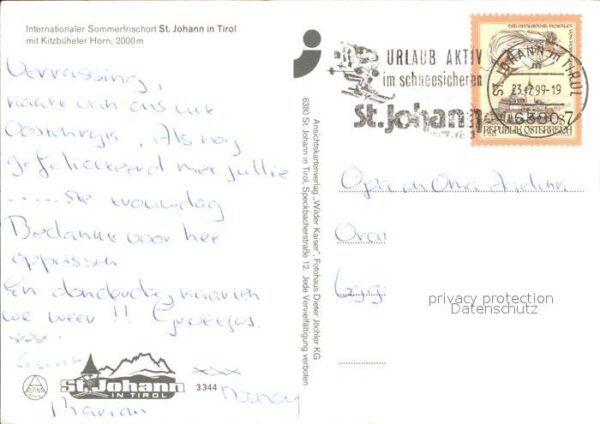 Internationaler Sommerfrischort St. Johann in Tirol
mit Kitzbüheler Horn, 2000 m
Verrassing,
kaart van ons uit
Oostenrijk. Als nog
gefeliciteerd met jullie
..... ste trouwdag
Bedankt voor het
oppassen
En donderdag
we weer !! Groetjes.
xxx
Marian
Nancy
St. Johann
IN TIROL
3344
Ansichtskartenverlag „Wilder Kaiser“, Fotohaus Dieter Jöchler KG
6380 St. Johann in Tirol, Speckbacherstraße 12. Jede Vervielfältigung verboten
URLAUB AKTIV
im schneesicheren
St. Johann
ST. JOHANN in TIROL
23.12.99-19
6380
S7
REPUBLIK ÖSTERREICH
Opa en Oma
privacy protection
Datenschutz